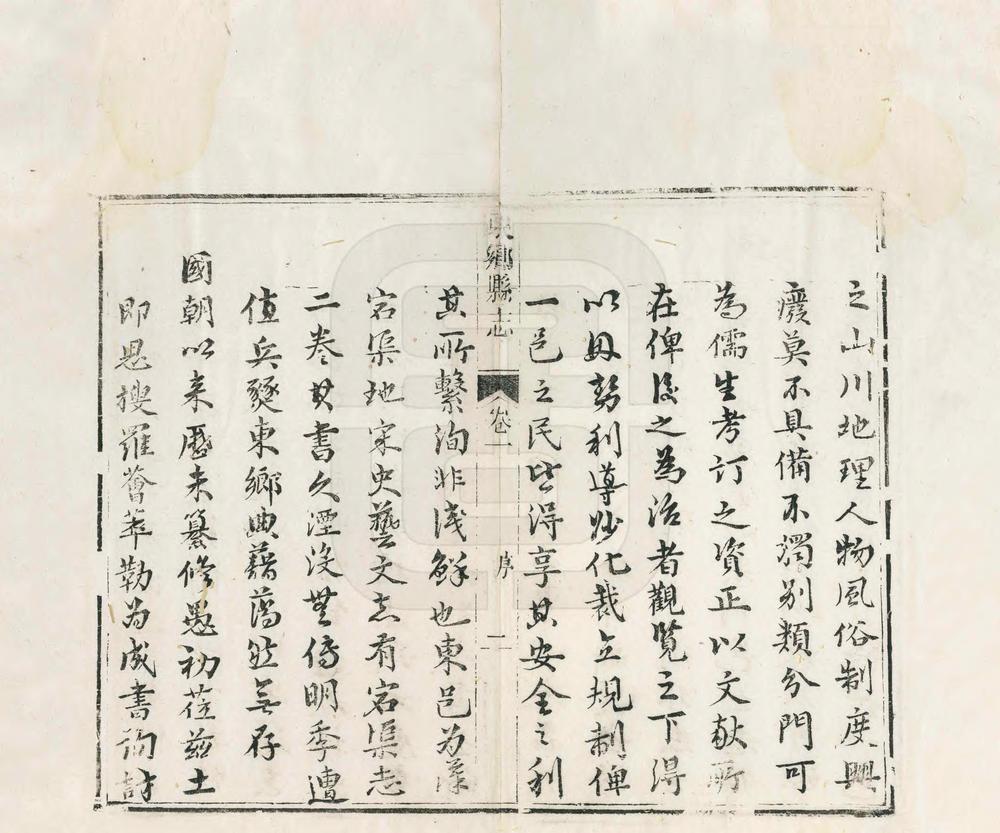 之山川地理人物風俗制度興
廢莫不具備不獨別類分門可
為儒生考訂之資正以文献所
在俾後之為治者觀覽之下得
以因勢利導妙化裁立規制俾
一邑之民皆得享其安全之利
東鄉縣志 卷一 序 一
其所繫洵非淺鮮也東邑为漢
宕渠地宋史藝文志有宕渠志
二卷其書久湮沒無傳明季遭
值兵燹東鄉典藉蕩然無存
國朝以来歷未纂修愚初莅兹土
即思搜羅薈萃勒为成書詢訪